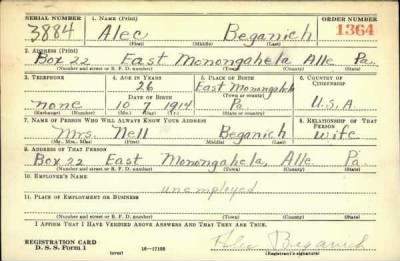 SERIAL NUMBER 1. NAME (Print) ORDER NUMBER
3884 Alec Beganich 1364
(First) (Middle) (Last)
2. ADDRESS (Print)
Box 22 East Monongahela Alle Pa.
(Number and street or R. F. D. number) (Town) (County) (State)
3. TELEPHONE 4. AGE IN YEARS 5. PLACE OF BIRTH 6. COUNTRY OF CITIZENSHIP
26 East Monongahela
(Town or county)
DATE OF BIRTH
none 10 7 1914 Pa. U.S.A
(Exchange) (Number) (Mo.) (Day) (Yr.) (State or country)
7. NAME OF PERSON WHO WILL ALWAYS KNOW YOUR ADDRESS 8. RELATIONSHIP OF THAT PERSON
Mrs. Nell Beganich wife
(Mr., Mrs., Miss) (First) (Middle) (Last)
9. ADDRESS OF THAT PERSON
Box 22 East Monongahela, Alle Pa.
(Number and street or R. F. D. number) (Town) (County) (State)
10. EMPLOYER'S NAME
unemployed
11. PLACE OF EMPLOYMENT OR BUSINESS
(Number and street or R. F. D. number) (Town) (County) (State)
I AFFIRM THAT I HAVE VERIFIED ABOVE ANSWERS AND THAT THEY ARE TRUE.
REGISTRATION CARD
D. S. S. Form 1 (over) 16-17105 Alec Beganich
(Registrant's signature)